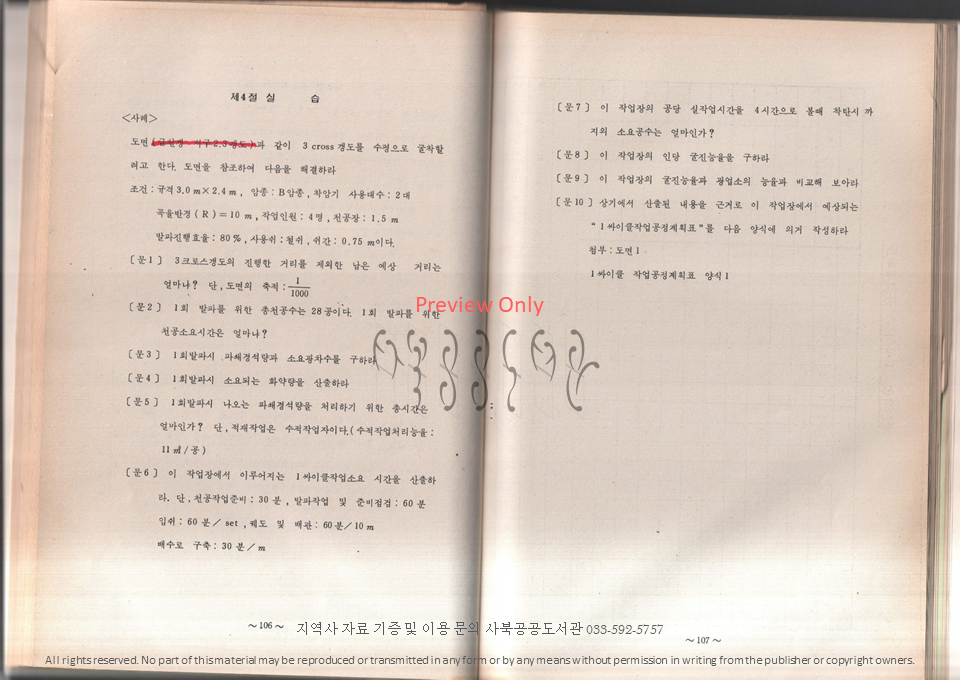 제4절 실 습
<사례>
도면( 2,3갱도)과 같이 3 cross 갱도를 수평으로 굴착할
려고 한다. 도면을 참조하여 다음을 해결하라
조건 : 규격 3.0 m × 2.4 m, 암종 : B암종, 착암기 사용대수 : 2대
곡율반경 ( R ) = 10 m , 작업인원 : 4명 , 천공장 : 1.5 m
발파진행효율 : 80 %, 사용쉬 : 철쉬 , 쉬간 : 0.75 m이다.
〔문1〕 3크로스갱도의 진행한 거리를 제외한 남은 예상 거리는
얼마냐? 단, 도면의 축척 : 1/1000
〔문2〕 1회 발파를 위한 총천공수는 28공이다. 1회 발파를 위한
천공소요시간은 얼마냐?
〔문3〕 1회발파시 파쇄경석량과 소요광차수를 구하라
〔문4〕 1회발파시 소요되는 화약량을 산출하라
〔문5〕 1회발파시 나오는 파쇄경석량을 처리하기 위한 총시간은
얼마인가? 단, 적재작업은 수적작업자이다.( 수적작업처리능율 :
11 ㎥/공 )
〔문6〕 이 작업장에서 이루어지는 1싸이클작업소요 시간을 산출하
라. 단, 천공작업준비 : 30 분 , 발파작업 및 준비점검 : 60 분
입쉬 : 60 분 / set , 궤도 및 배관 : 60 분 / 10 m
배수로 구축 : 30 분 / m
~ 106 ~
〔문7〕 이 작업장의 공당 실작업시간을 4시간으로 볼때 착탄시 까
지의 소요공수는 얼마인가?
〔문8〕 이 작업장의 인당 굴진능율을 구하라
〔문9〕 이 작업장의 굴진능율과 광업소의 능율과 비교해 보아라
〔문10〕 상기에서 산출된 내용을 근거로 이 작업장에서 예상되는
“ 1싸이클작업공정계획표 ”를 다음 양식에 의거 작성하라
첨부 : 도면 1
1싸이클 작업공정계획표 양식 1
~ 107 ~
Preview Only
지역사 자료 기증 및 이용 문의 사북공공도서관 033-592-5757
All rights reserved. No part of this material may be reproduced or transmitted in any form or by any means without permission in writing from the publisher or copyright owners.